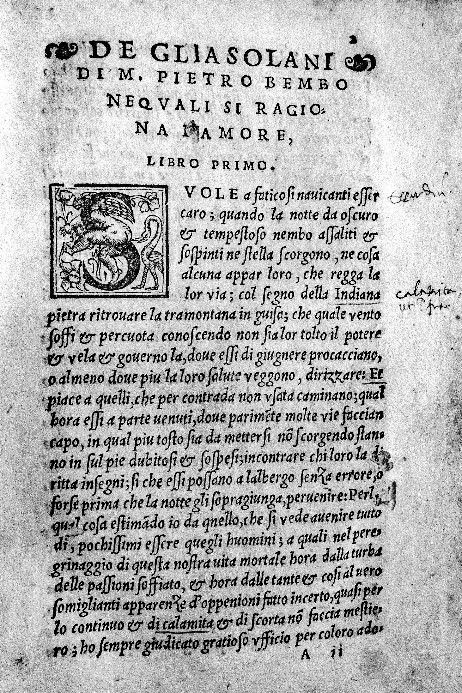 2
DE GLI ASOLANI
DI M. PIETRO BEMBO
NE QVALI SI RAGIO-
NA D'AMORE,
LIBRO PRIMO.
SVOLE a faticosi nauicanti esser
caro; quando la notte da oscuro
& tempestoso nembo assaliti &
sospinti ne stella scorgono, ne cosa
alcuna appar loro, che regga la
lor via; col segno della Indiana
pietra ritrouare la tramontana in guisa; che quale vento
soffi & percuota conoscendo non sia lor tolto il potere
& vela & gouerno la, doue essi di giugnere procacciano,
o almeno doue piu la loro salute veggono, dirizzare: Et
piace a quelli, che per contrada non vsata caminano; qual
hora essi a parte venuti, doue parimẽte molte vie faccian
capo, in qual piu tosto sia da mettersi nõ scorgendo stan-
no in sul pie dubitosi & sospesi; incontrare chi loro la di-
ritta insegni; si che essi possano a lalbergo senza errore, o
forse prima che la notte gli sopragiunga, peruenire: Perl,
qual cosa estimãdo io da quello, che si vede auenire tutto
di, pochissimi essere quegli huomini; a quali nel pere-
grinaggio di questa nostra vita mortale hora dalla turba
delle passioni soffiato, & hora dalle tante & cosi al vero
somiglianti apparenze d'oppenioni fatto incerto, quasi per
lo continuo & di calamita & di scorta nõ faccia mestie-
ro; ho sempre giudicato gratioso vfficio per coloro ado-
A ii